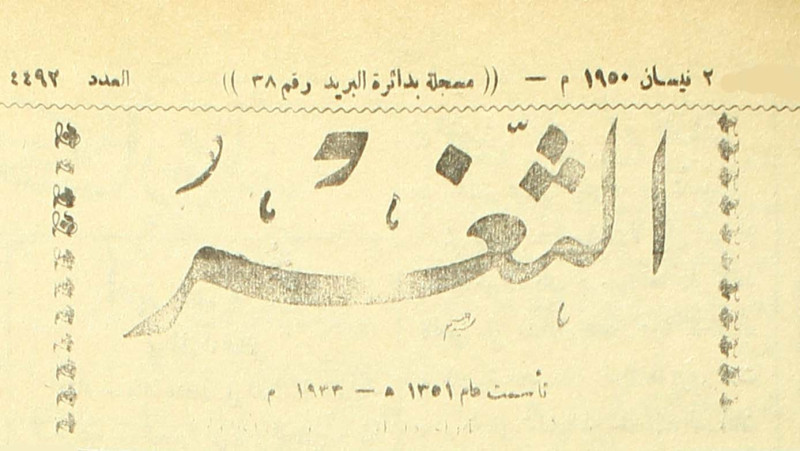 ٢ نيسان ١٩٥٠ م — (( مسجلة بدائرة البريد رقم ٣٨ )) العدد ٤٤٩٢
الثغر
تأسست عام ١٣٥١ ه — ١٩٣٣ م